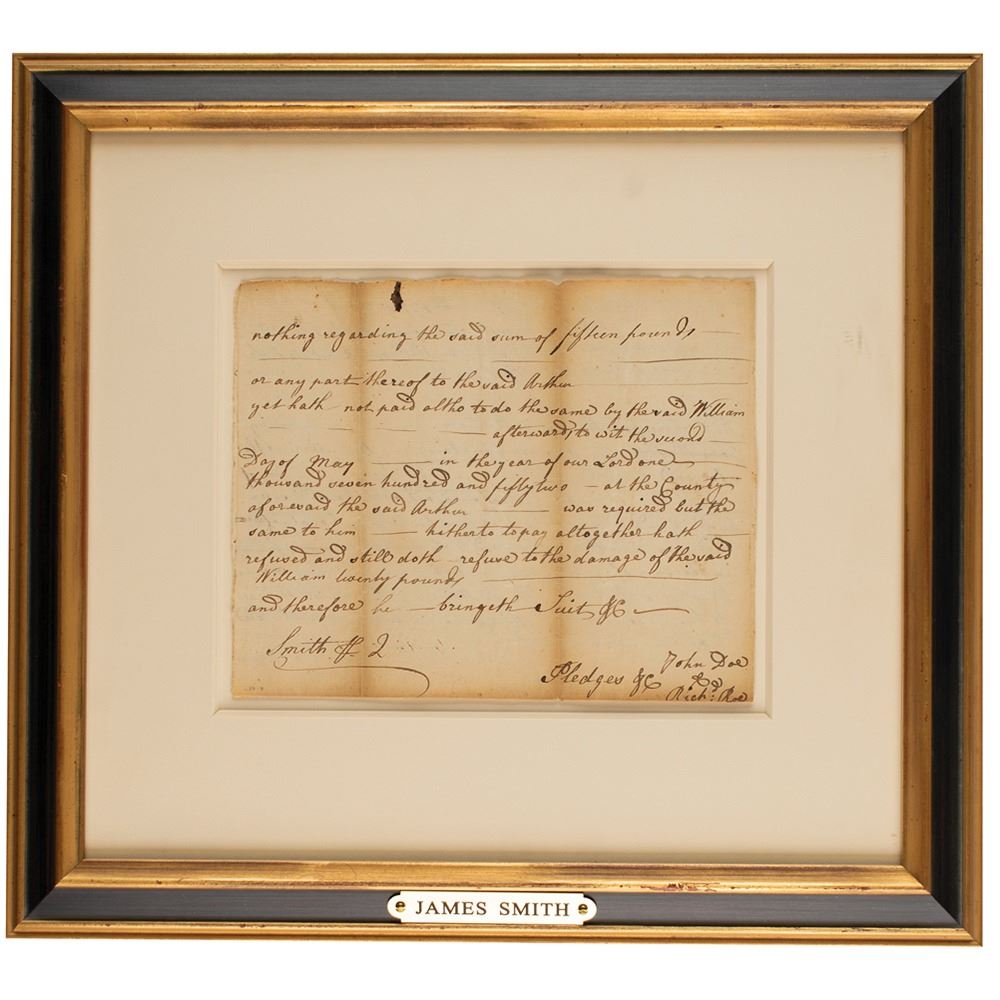 nothing regarding the said sum of fifteen pounds
or any part thereof to the said Arthur
yet hath not paid altho to do the same by the said William
afterwards to wit the second
Day of May in the year of our Lord one
thousand seven hundred and fifty two at the County
aforesaid the said Arthur was required but the
same to him hitherto to pay altogether hath
refused and still doth refuse to the damage of the said
William twenty pounds
and therefore he bringeth Suit &C
Smith
Pledges &C John Doe
&
Richd: Roe
JAMES SMITH